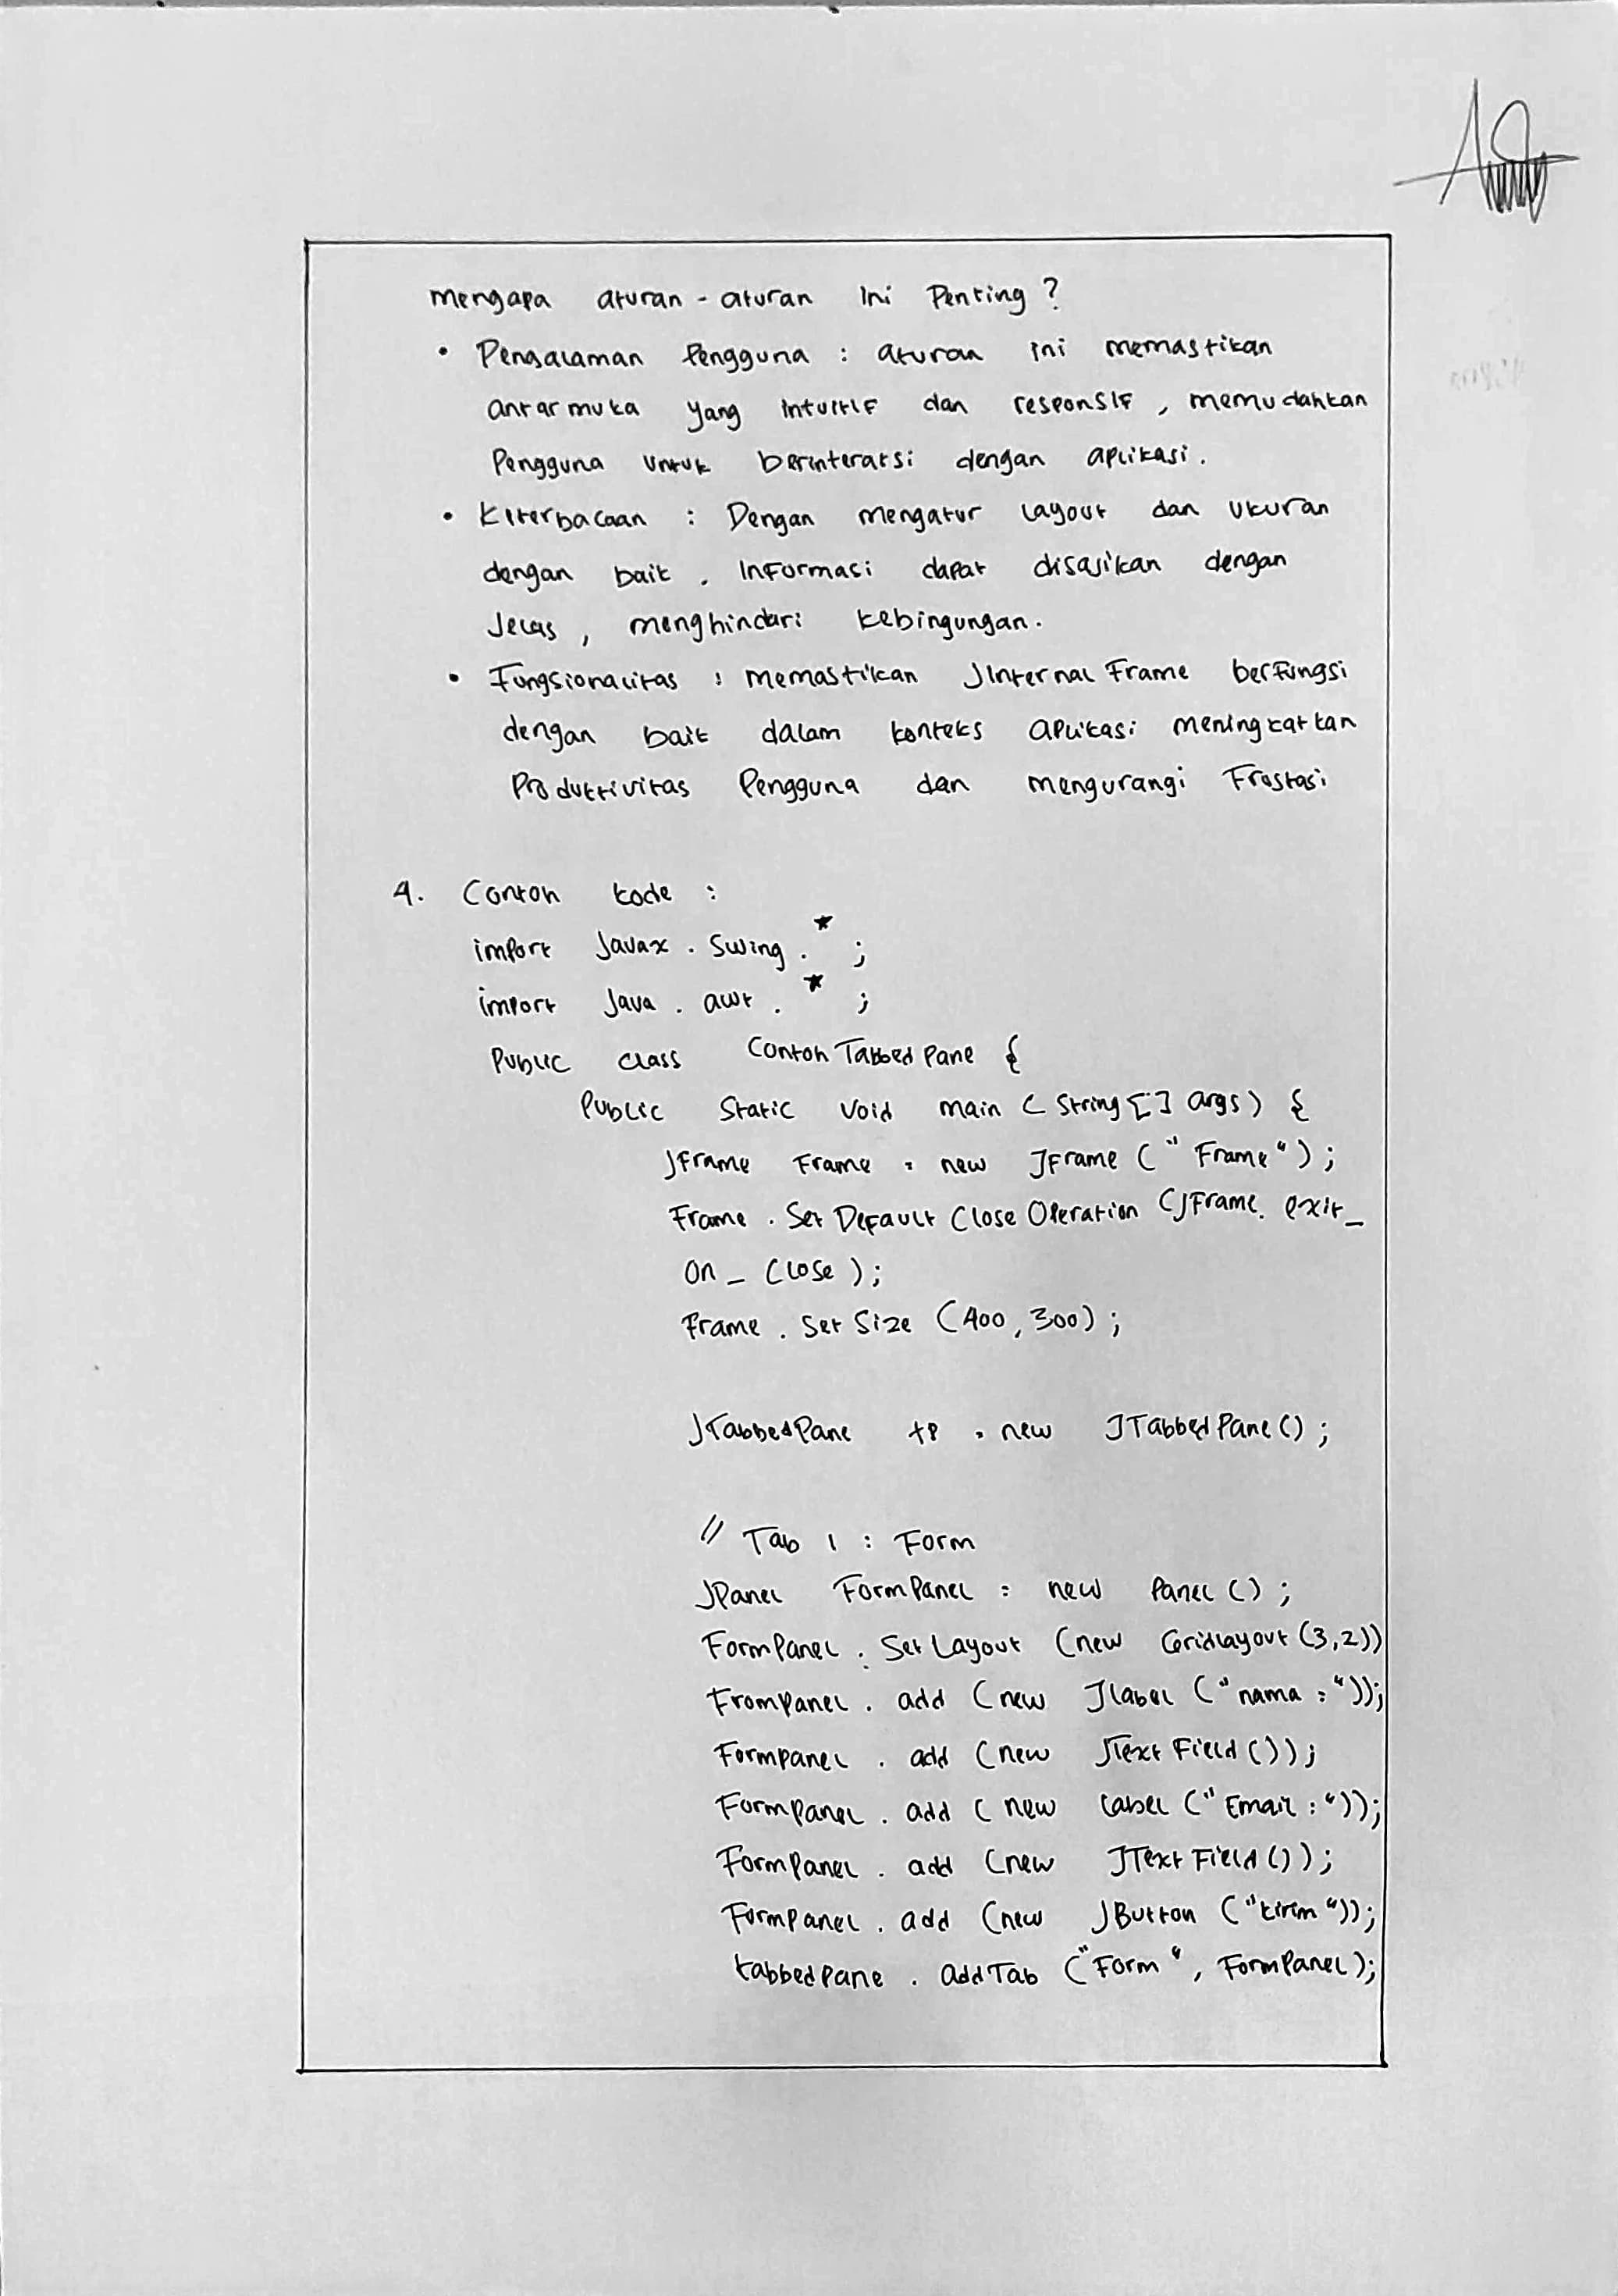 mengapa aturan - aturan ini Penting ?
• Pengalaman Pengguna : aturan ini memastikan
antarmuka yang intuitif dan responsif , memudahkan
Pengguna untuk berinteraksi dengan aplikasi .
• Keterbacaan : Dengan mengatur Layout dan Ukuran
dengan baik . Informasi dapat disajikan dengan
Jelas , menghindari kebingungan .
• Fungsionalitas : memastikan JInternal Frame berfungsi
dengan baik dalam konteks aplikasi meningkatkan
Produktivitas Pengguna dan mengurangi Frustasi
4. Contoh kode :
import Javax . Swing . * ;
import Java . awt . * ;
Public class Contoh Tabbed Pane {
Public Static Void main ( String [] args ) {
JFrame Frame = new JFrame ( " Frame " ) ;
Frame . Set Default Close Operation (JFrame. exit _
on _ Close ) ;
Frame . Set Size (400 , 300) ;
JTabbedPane tP = new JTabbed Pane () ;
// Tab 1 : Form
JPanel FormPanel = new Panel () ;
FormPanel . Set Layout (new GridLayout (3,2))
FromPanel . add (new JLabel (" nama : "));
FormPanel . add (new JText Field ());
FormPanel . add ( new Label (" Email : "));
FormPanel . add (new JText Field ());
FormPanel . add (new JButton ("kirim"));
tabbedPane . addTab ("Form" , FormPanel);